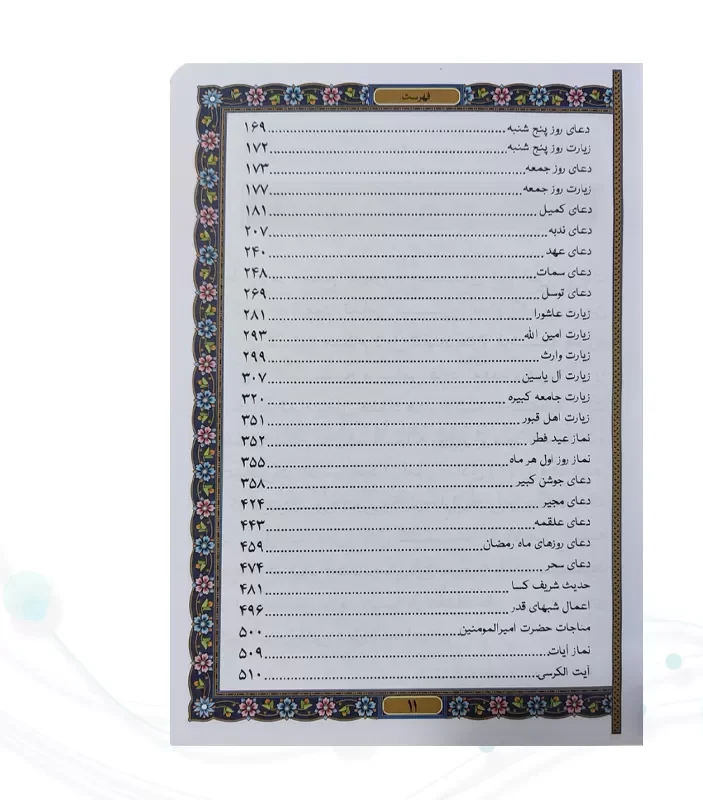 فهرست
دعای روز پنج شنبه............۱۶۹
زیارت روز پنج شنبه............۱۷۲
دعای روز جمعه............۱۷۳
زیارت روز جمعه............۱۷۷
دعای کمیل............۱۸۱
دعای ندبه............۲۰۷
دعای عهد............۲۴۰
دعای سمات............۲۴۸
دعای توسل............۲۶۹
زیارت عاشورا............۲۸۱
زیارت امین الله............۲۹۳
زیارت وارث............۲۹۹
زیارت آل یاسین............۳۰۷
زیارت جامعه کبیره............۳۲۰
زیارت اهل قبور............۳۵۱
نماز عید فطر............۳۵۲
نماز روز اول هر ماه............۳۵۵
دعای جوشن کبیر............۳۵۸
دعای مجیر............۴۲۴
دعای علقمه............۴۴۳
دعای روزهای ماه رمضان............۴۵۹
دعای سحر............۴۷۴
حدیث شریف کسا............۴۸۱
اعمال شبهای قدر............۴۹۶
مناجات حضرت امیرالمومنین............۵۰۰
نماز آیات............۵۰۹
آیت الکرسی............۵۱۰
۱۱